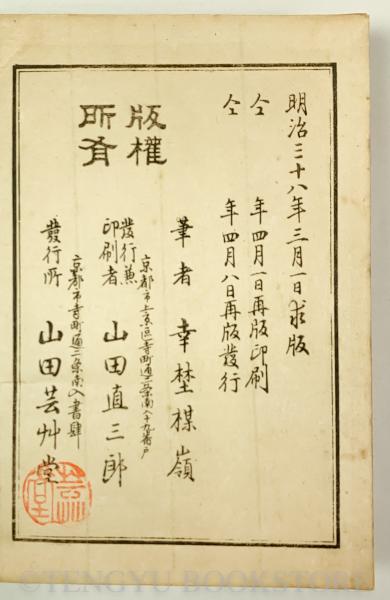 明治三十八年三月一日求版
仝 年四月一日再版印刷
仝 年四月八日再版發行
筆者 幸埜楳嶺
京都市上京區寺町通二条南入十九番戸
發行兼
印刷者 山田直三郎
京都市寺町通二条南入書肆
發行所 山田芸艸堂
版權
所有
芸艸堂
©TENGYU BOOKSTORE